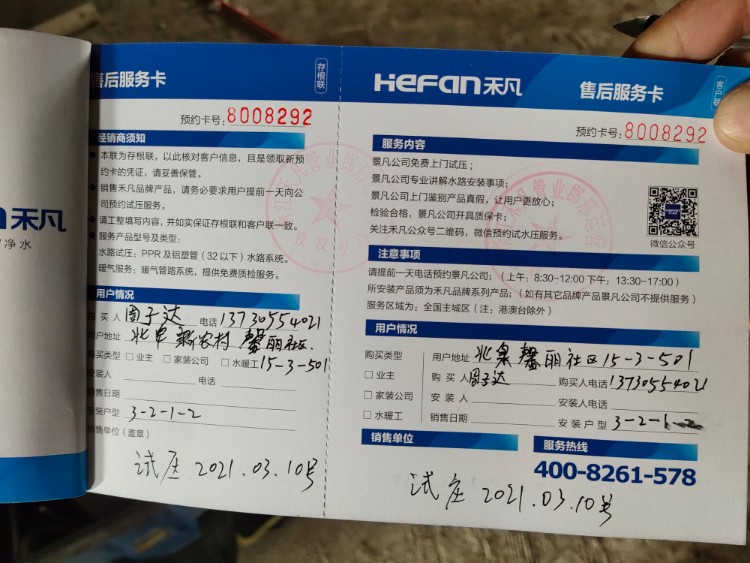 净水
售后服务卡
存根联
预约卡号:8008292
经销商须知
本联为存根联，以此核对客户信息，且是领取新预
约卡的凭证，请妥善保管。
销售禾凡品牌产品，请务必要求用户提前一天向公
司预约试压服务。
请工整填写内容，并如实保证存根联和客户联一致。
服务产品型号及类型:
水路试压：PPR 及铝塑管（32 以下）水路系统。
暖气服务：暖气管路系统，提供免费质检服务。
用户情况
购 买 人 周子达 电话 13730554021
用户地址 北皋新农村 馨丽社区.
□ 业主 □ 家装公司 □ 水暖工 15-3-501
安装人 电话
销售日期
安装户型 3-2-1-2
销售单位（盖章）
试压 2021.03.10号
HeFan禾凡
售后服务卡
客户联
预约卡号:8008292
服务内容
景凡公司免费上门试压；
景凡公司专业讲解水路安装事项；
景凡公司上门鉴别产品真假，让用户更放心；
检验合格，景凡公司开具质保卡；
关注禾凡公众号二维码，微信预约试水压服务。
微信公众号
注意事项
请提前一天电话预约景凡公司：（上午：8:30-12:00 下午：13:30-17:00）
所安装产品须为禾凡品牌系列产品；（如有其它品牌产品景凡公司不提供服务）
服务区域为：全国主城区（注：港澳台除外）
用户情况
购买类型
□ 业主
□ 家装公司
□ 水暖工
用户地址 北皋馨丽社区15-3-501
购 买 人 周子达 购买人电话 13730554021
安 装 人 安装人电话
销售日期 安 装 户 型 3-2-1-2
销售单位
服务热线
400-8261-578
试压 2021.03.10号